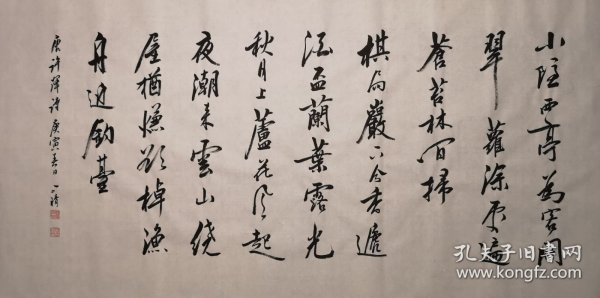 小隱西亭為客開
翠蘿深處遍
蒼苔林间掃
棋局巖下分香遞
酒盃蘭葉露光
秋月上蘆花风起
夜潮来雲山繞
屋猶嫌欲棹漁
舟近釣臺
唐許渾詩 庚寅春日
孔夫子旧書网
www.kongfz.com